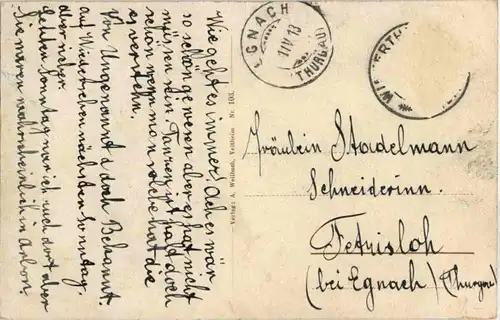 Wie geht es immer. Ach es wär
so schön gewesen aber es hat nicht
müssen sein. Tanzen ist bald doch
schon wenn man solche hat die
es verstehn.
Von Ungenannt doch Bekannt.
auf Wiedersehen nächsten Sonntag.
aber
letzten Sonntag war ich auch dort aber
Sie waren wahrscheinlich in Arbon.
Verlag: A. Weilbach, Veltheim Nr. 103.
EGNACH
1 IV 13
(THURGAU)
WINTERTH
Fräulein Stadelmann
Schneiderinn.
Fetzisloh
(bei Egnach) (Thurgau)